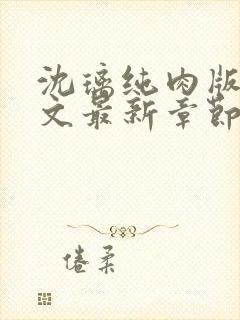 沈璃纯肉版
文最新章节
倦柔